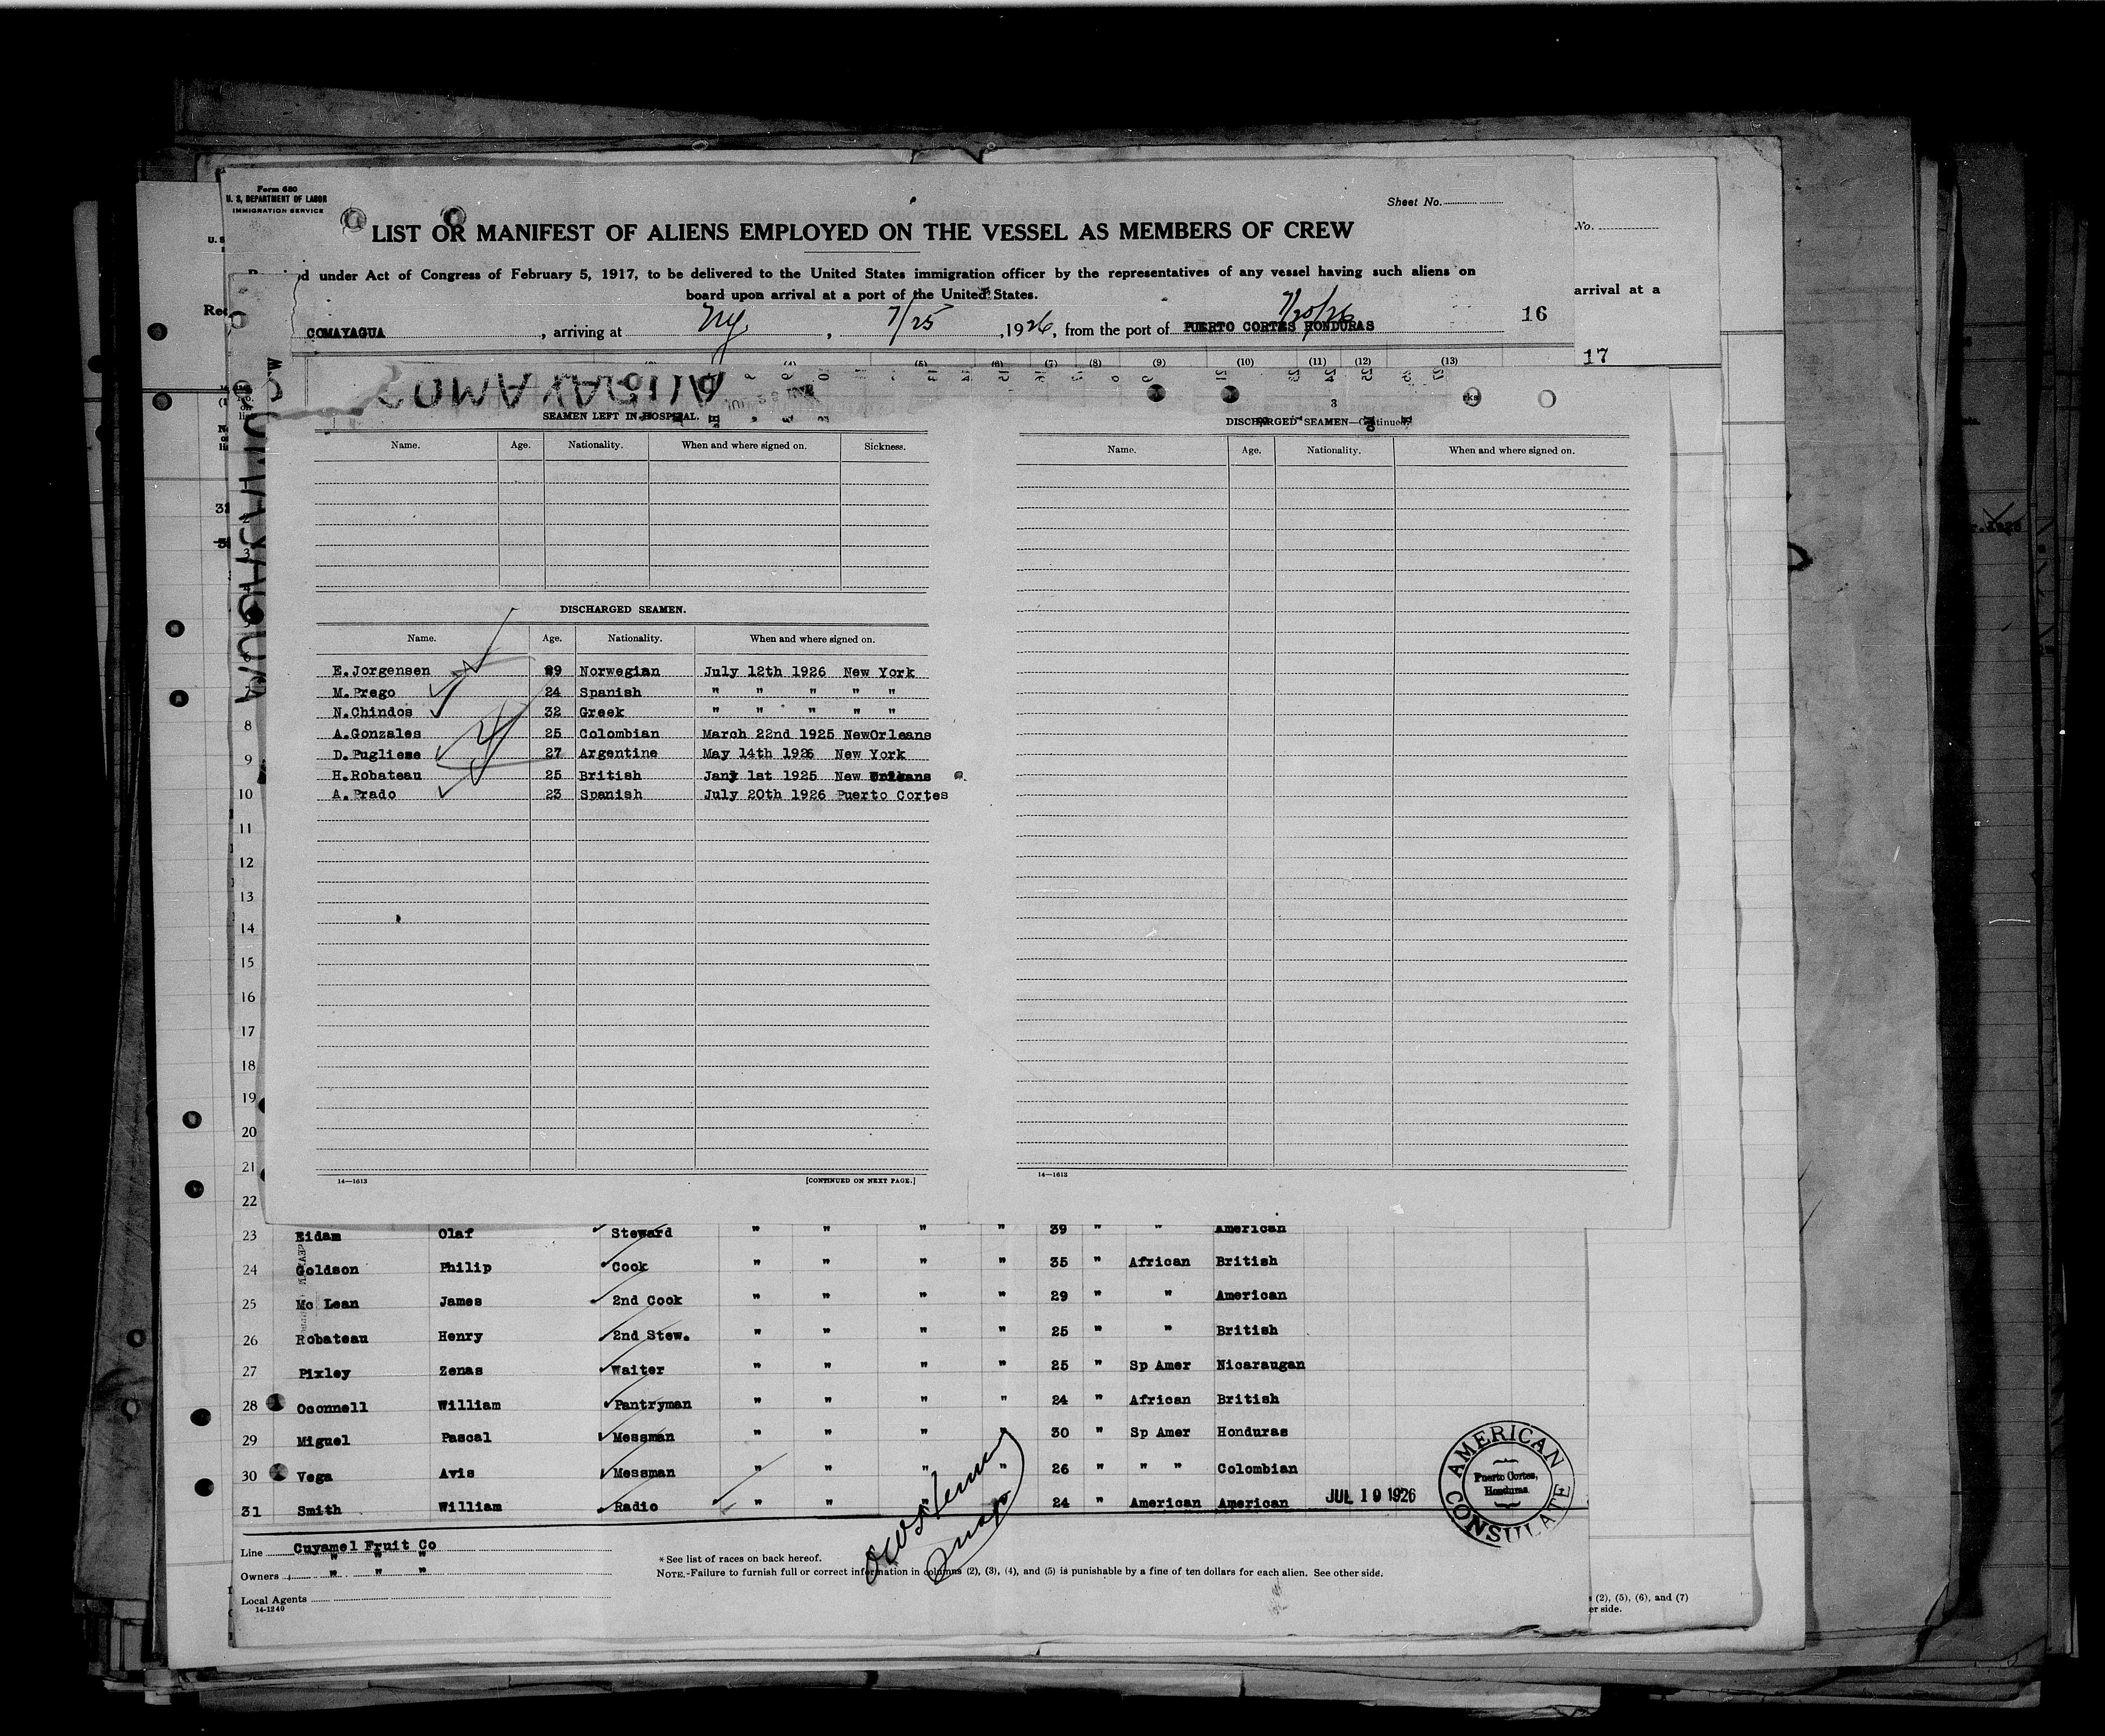 Form 680
U. S. DEPARTMENT OF LABOR
IMMIGRATION SERVICE
Sheet No.
LIST OR MANIFEST OF ALIENS EMPLOYED ON THE VESSEL AS MEMBERS OF CREW
No.
under Act of Congress of February 5, 1917, to be delivered to the United States immigration officer by the representatives of any vessel having such aliens on
board upon arrival at a port of the United States.
arrival at a
COMAYAGUA, arriving at Ny, 7/25, 1926, from the port of PUERTO CORTES HONDURAS 7/20/26 16
17
(5) (6) (7) (8) (9) (10) (11) (12) (13)
COMAYAGUA
3
SEAMEN LEFT IN HOSPITAL.
DISCHARGED SEAMEN—Continued
Name. Age. Nationality. When and where signed on. Sickness.
Name. Age. Nationality. When and where signed on.
DISCHARGED SEAMEN.
Name. Age. Nationality. When and where signed on.
E.Jorgensen 29 Norwegian July 12th 1926 New York
M.Prego 24 Spanish " " " " "
N.Chindos 32 Greek " " " " "
8 A.Gonzales 25 Colombian March 22nd 1925 NewOrleans
9 D.Pugliese 27 Argentine May 14th 1926 New York
H.Robateau 25 British Jany 1st 1925 New Orleans
10 A.Prado 23 Spanish July 20th 1926 Puerto Cortes
11
12
13
14
15
16
17
18
19
20
21
14—1613 [CONTINUED ON NEXT PAGE.]
14—1613
22
23 Eidam Olaf Steward " " " " 39 " " American
24 Goldson Philip Cook " " " " 35 " African British
25 Mc Lean James 2nd Cook " " " " 29 " " American
26 Robateau Henry 2nd Stew. " " " " 25 " " British
27 Pixley Zenas Waiter " " " " 25 " Sp Amer Nicaraugan
28 Oconnell William Pantryman " " " " 24 " African British
29 Miguel Pascal Messman " " " " 30 " Sp Amer Honduras
30 Vega Avis Messman " " " " 26 " " " Colombian
31 Smith William Radio " " " " 24 " American American JUL 19 1926
AMERICAN CONSULATE
Puerto Cortes,
Honduras
Line Cuyamel Fruit Co
Owners " " "
Local Agents
14-1240
* See list of races on back hereof.
NOTE.-Failure to furnish full or correct information in columns (2), (3), (4), and (5) is punishable by a fine of ten dollars for each alien. See other side.
(2), (5), (6), and (7)
er side.